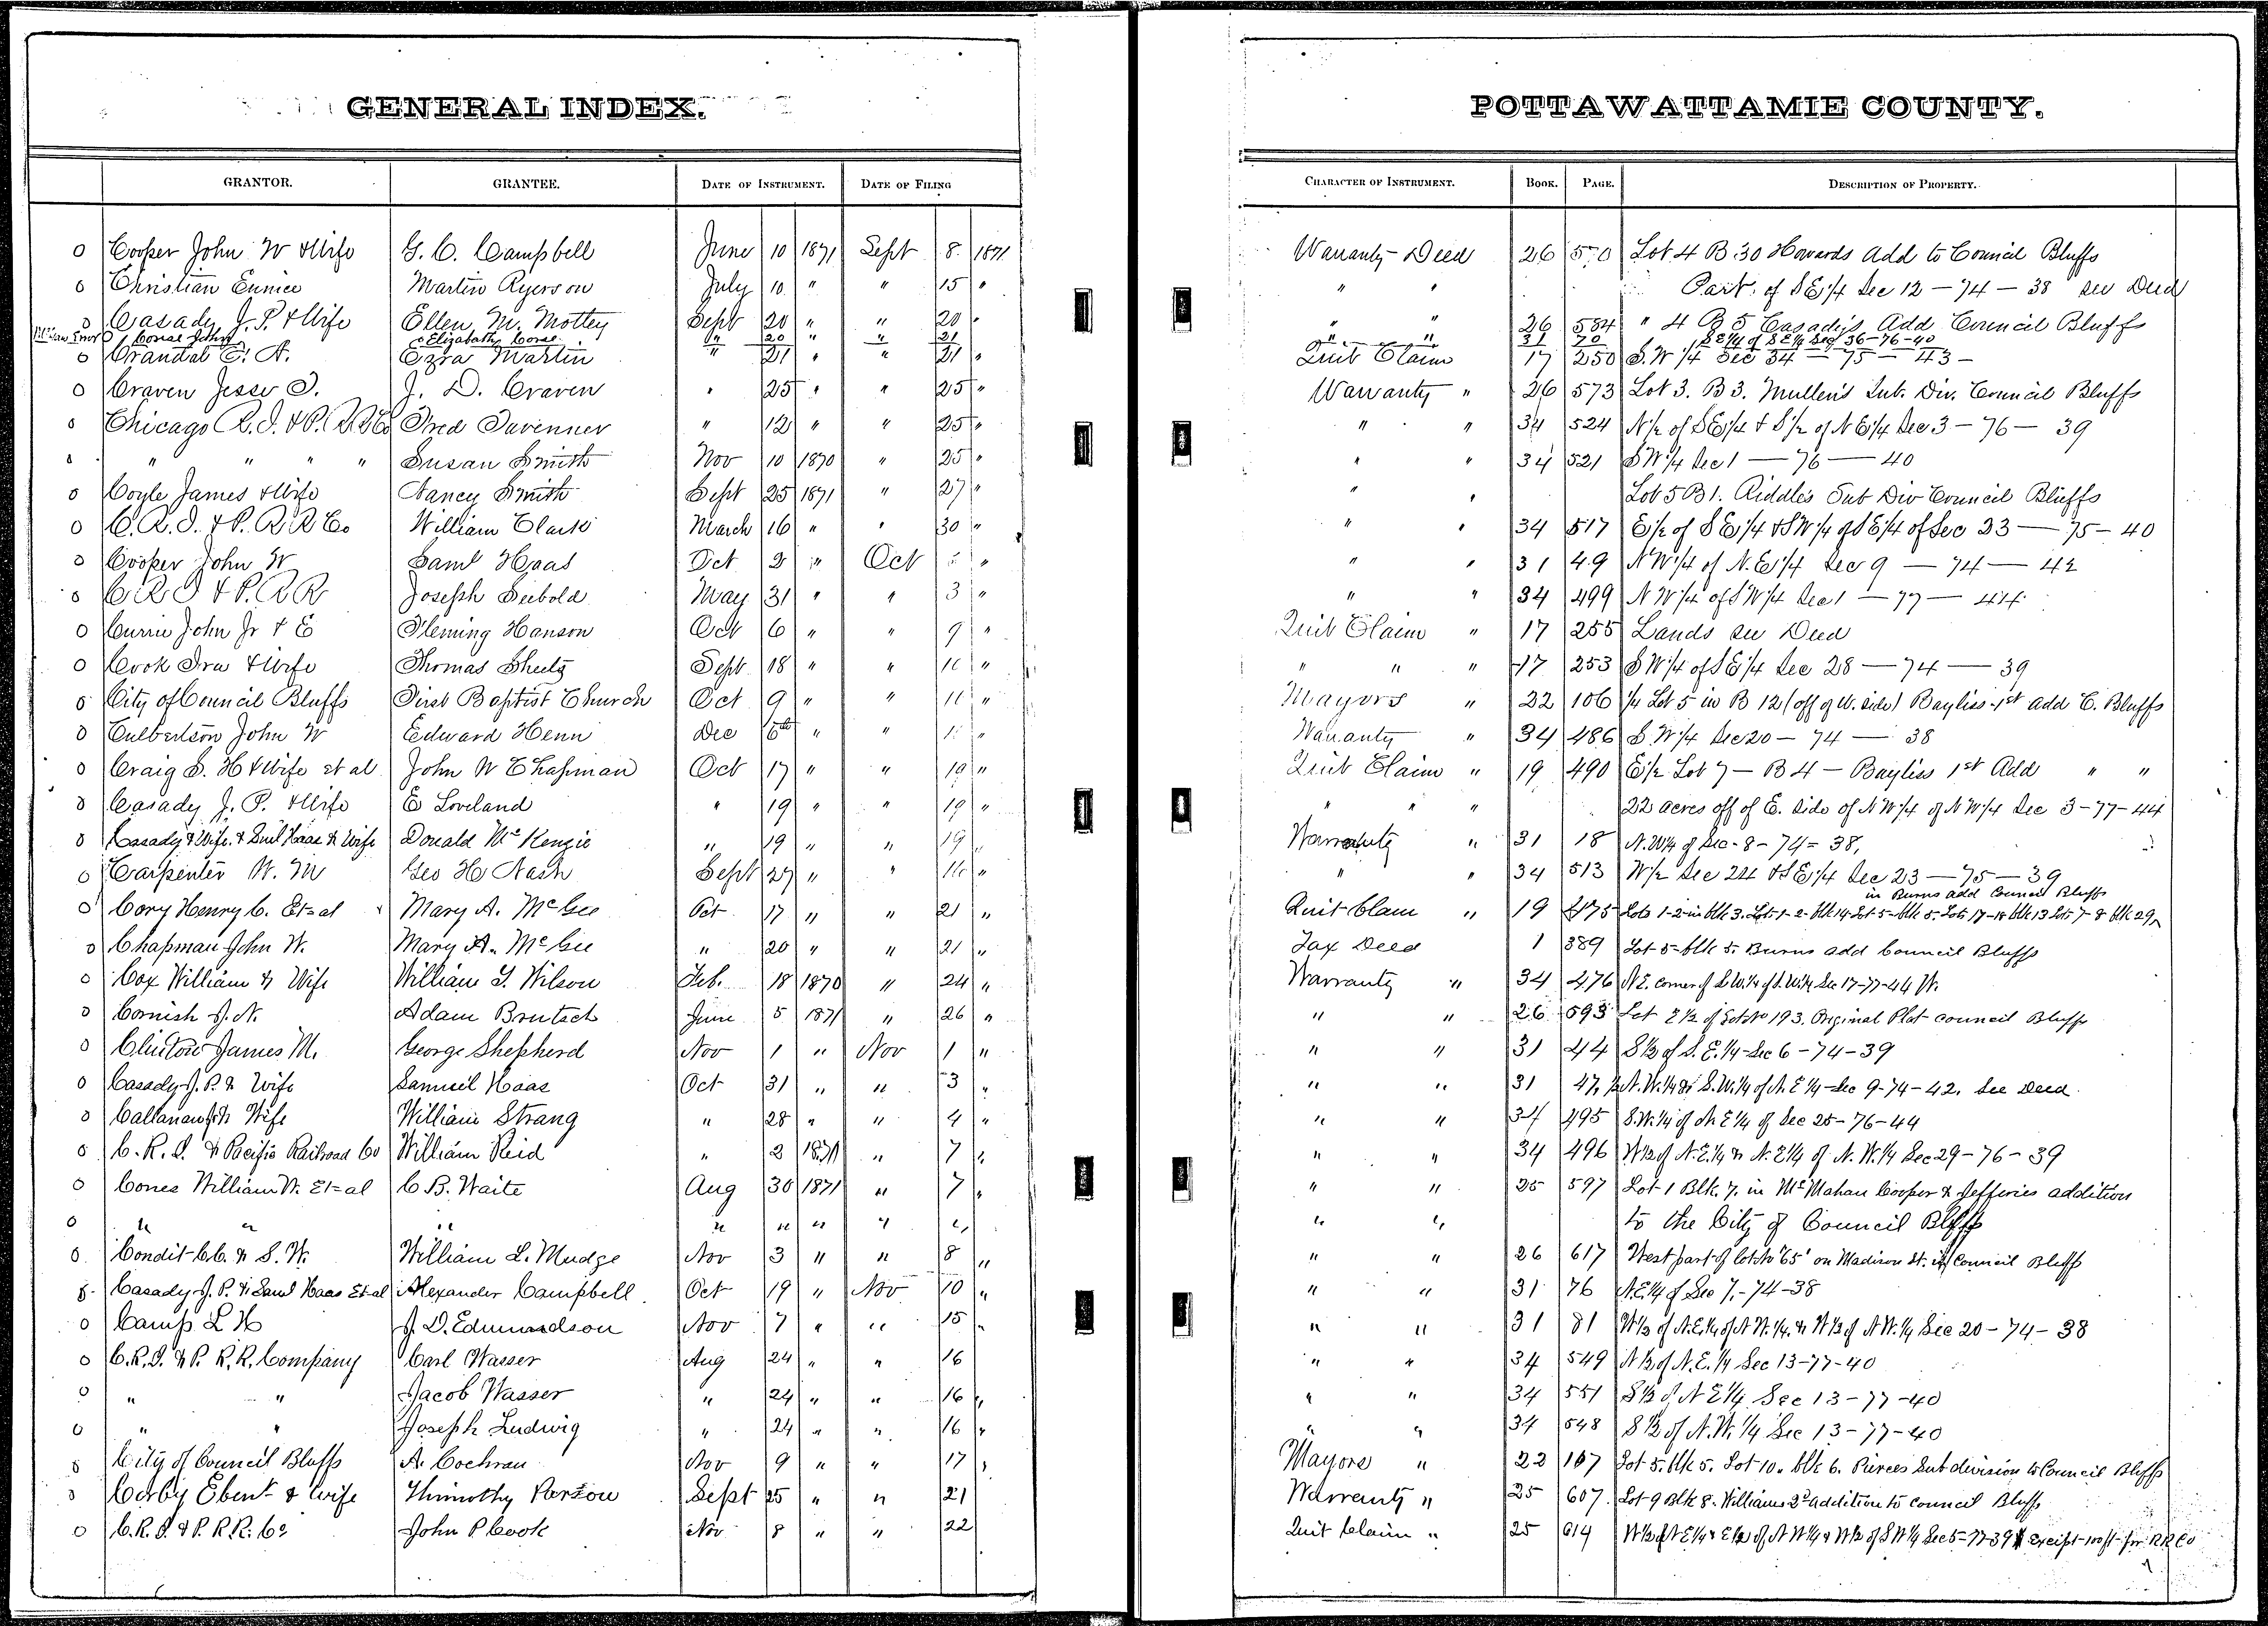 GENERAL INDEX.
POTTAWATTAMIE COUNTY.
GRANTOR. GRANTEE. DATE OF INSTRUMENT. DATE OF FILING CHARACTER OF INSTRUMENT. BOOK. PAGE. DESCRIPTION OF PROPERTY.
o Cooper John W & Wife G. C. Campbell June 10 1871 Sept 8 1871 Warranty Deed 26 570 Lot 4 B 30 Howards Add to Council Bluffs
o Christian Eunice Martin Ryerson July 10 " " 15 " " " Part of S E 1/4 Sec 12 — 74 — 38 see Deed
o Casady J. P. & Wife Ellen M. Mottey Sept 20 " " 20 " " " 26 584 " 4 B 5 Casady's Add Council Bluffs
o Corse John Elizabath Corse " 20 " " 21 " " 31 70 S E 1/4 of S E 1/4 Sec 36-76-40
o Crandal E. A. Ezra Martin " 21 " " 21 " Quit Claim 17 250 S. W 1/4 Sec 34 — 75 — 43 -
o Craven Jesse T. J. D. Craven " 25 " " 25 " Warranty " 26 573 Lot 3. B 3. Mullen's Sub. Div. Council Bluffs
o Chicago R. I. & P. R R Co Fred Tavenner " 12 " " 25 " " " 34 524 N 1/2 of S E 1/4 & S 1/2 of N E 1/4 Sec 3 — 76 — 39
o " " " " Susan Smith Nov 10 1870 " 25 " " " 34 521 S W 1/4 Sec 1 — 76 — 40
o Coyle James & Wife Nancy Smith Sept 25 1871 " 27 " " " Lot 5 B 1. Riddles Sub Div Council Bluffs
o C. R. I. & P. R R Co William Clark March 16 " " 30 " " " 34 517 E 1/2 of S E 1/4 & S W 1/4 of S E 1/4 of Sec 23 — 75 - 40
o Cooper John W Saml Haas Oct 2 " Oct " " " 31 49 N W 1/4 of N. E 1/4 Sec 9 — 74 — 42
o C R I & P. R R Joseph Seibold May 31 " " 3 " " " 34 499 N W 1/4 of S W 1/4 Sec 1 — 77 — 44
o Currie John Jr & E Fleming Hanson Oct 6 " " 9 " Quit Claim " 17 255 Lands see Deed
o Cook Ira & Wife Thomas Sheetz Sept 18 " " 10 " " " " 17 253 S W 1/4 of S E 1/4 Sec 28 — 74 — 39
o City of Council Bluffs First Baptist Church Oct 9 " " 11 " Mayors " 22 106 1/4 Lot 5 in B 12 (off of W. side) Bayliss 1st add C. Bluffs
o Culbertson John W Edward Henn Dec 6th " " " Warranty " 34 486 S. W 1/4 Sec 20 — 74 — 38
o Craig S. H & Wife et al John W Chapman Oct 17 " " 19 " Quit Claim " 19 490 E 1/2 Lot 7 — B 4 — Bayliss 1st Add " "
o Casady J. P. & Wife E Loveland " 19 " " 19 " " " " 22 acres off of E. side of N W 1/4 of N W 1/4 Sec 3-77-44
o Casady & Wife. & Saml Haas & Wife Donald McKenzie " 19 " " 19 " Warranty " 31 18 N. W 1/4 of Sec - 8 - 74 = 38,
o Carpenter W. M Geo H Nash Sept 27 " " 16 " " " 34 513 W 1/2 Sec 24 & S E 1/4 Sec 23 — 75 — 39
in Burns add Council Bluffs
o Cory Henry C. Et=al Mary A. McGee Oct 17 " " 21 " Quit Claim " 19 475 Lots 1-2-in blk 3. Lots 1-2-blk 14 Lot 5-blk 5. Lots 17-18 blk 13 Lots 7-8 blk 29,
o Chapman John W. Mary A. McGee " 20 " " 21 " Tax Deed 1 389 Lot-5-blk 5. Burns add Council Bluffs
o Cox William & Wife William T. Wilson Feb. 18 1870 " 24 " Warranty " 34 476 N E. corner of S. W. 1/4 of S. W 1/4 Sec 17-77-44 W.
o Cornish J. N. Adam Brutsch June 5 1871 " 26 " " " 26 593 Lot E 1/2 of Lot No 193. Original Plat council Bluffs
o Clinton James M. George Shepherd Nov 1 " Nov 1 " " " 31 44 S 1/2 of S. E. 1/4 - Sec 6 - 74 - 39
o Casady J. P. & Wife Samuel Haas Oct 31 " " 3 " " " 31 47, N. W. 1/4 & S. W. 1/4 of N. E 1/4 = Sec 9-74-42. See Deed.
o Callanan & Wife William Strang " 28 " " 4 " " " 34 495 S. W. 1/4 of N. E 1/4 of Sec 25-76-44
o C. R. I. & Pacific Railroad Co William Reid " 2 1871 " 7 " " " 34 496 W 1/2 of N. E. 1/4 & N. E 1/4 of N. W. 1/4 Sec 29-76-39
o Cones William W. Et=al C. B. Waite Aug 30 1871 " 7 " " " 25 597 Lot 1 Blk. 7. in McMahan Cooper & Jefferies addition
o " " " " " " " " " " to the City of Council Bluffs
o Condit C. C. & S. W. William L. Mudge Nov 3 " " 8 " " " 26 617 West part of lot No "65" on Madison St. in Council Bluffs
Casady J. P. & Saml Haas Et-al Alexander Campbell Oct 19 " Nov 10 " " " 31 76 N. E. 1/4 of Sec 7,-74-38
o Camp L H J. D. Edmundson Nov 7 " " 15 " " " 31 81 W 1/2 of N. E. 1/4 of N W. 1/4. & W 1/2 of N W. 1/4 Sec 20-74-38
o C. R. I. & P. R. R. Company Carl Wasser Aug 24 " " 16 " " 34 549 N 1/2 of N. E. 1/4 Sec 13-77-40
o " " Jacob Wasser " 24 " " 16 " " " 34 551 S 1/2 of N E 1/4 Sec 13-77-40
o " " Joseph Ludwig " 24 " " 16 " " " 34 548 S 1/2 of N. W. 1/4 Sec 13-77-40
City of Council Bluffs A. Cochran Nov 9 " " 17 " Mayors " 22 107 Lot 5. blk 5. Lot 10. blk 6. Pierces Subdivision to Council Bluffs
o Corby Ebent & Wife Thimothy Parson Sept 25 " " 21 Warranty " 25 607. Lot 9 Blk 8. Williams 2d addition to council Bluffs
o C. R. I. & P. R. R. Co John P Cook Nov 8 " " 22 Quit Claim " 25 614 W 1/2 of N E 1/4 & E 1/2 of N W 1/4 & W 1/2 of S W 1/4 Sec 5-77-39 Except-100 ft-for R R Co